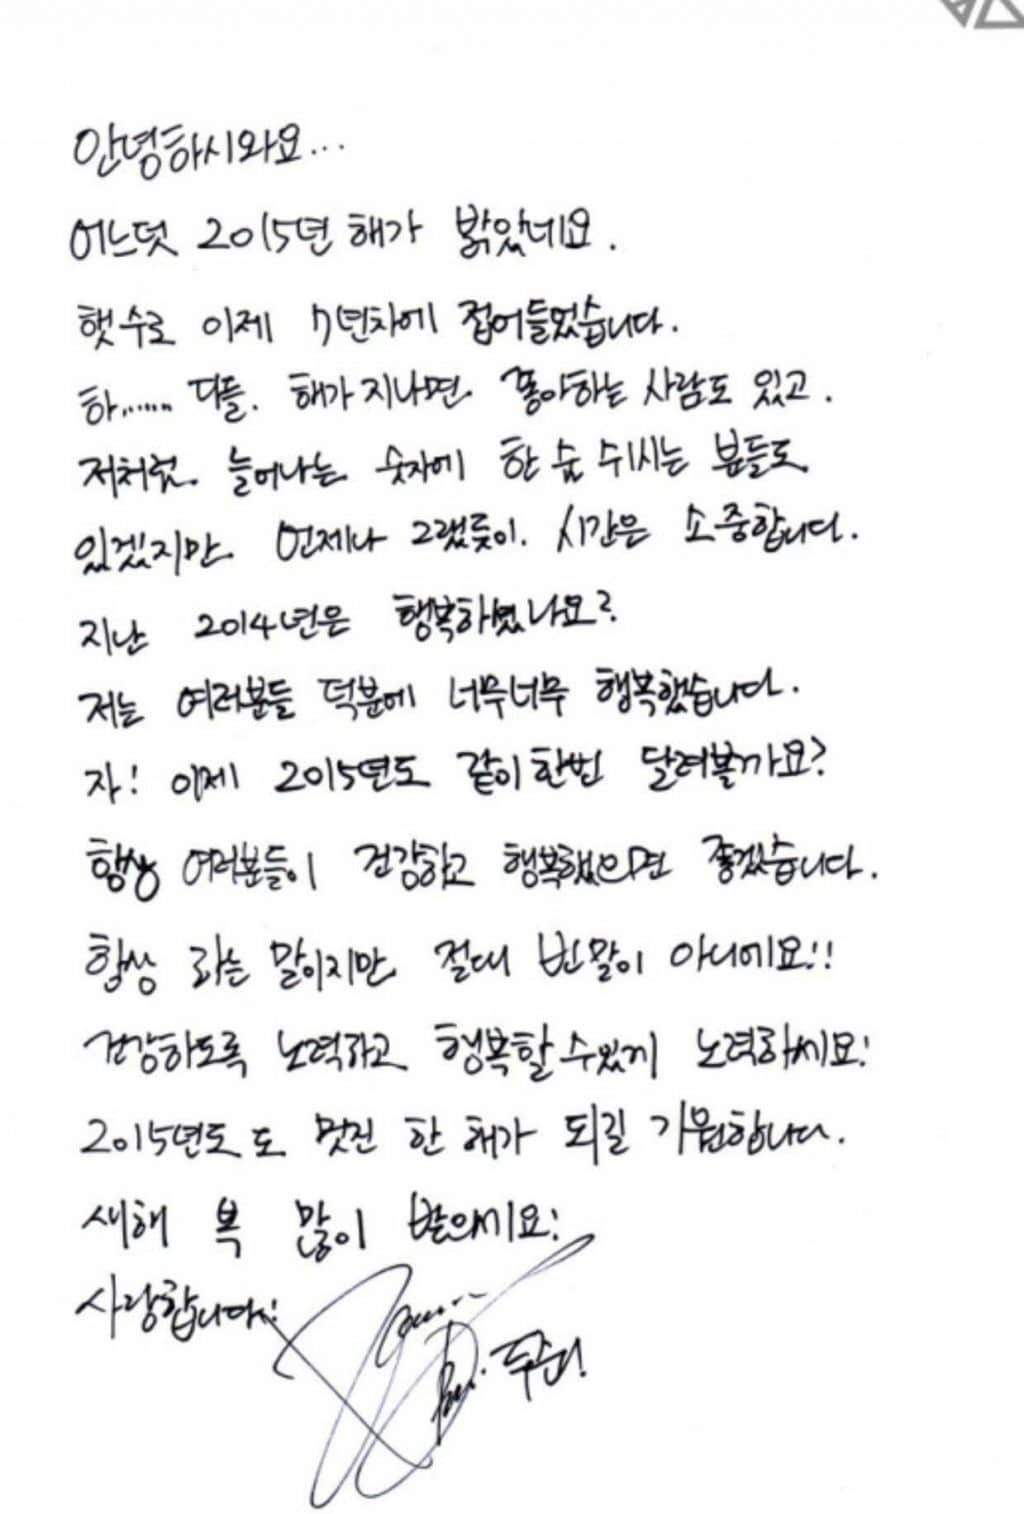 안녕하시와요...
어느덧 2015년 해가 밝았네요.
햇수로 이제 7년차에 접어들었습니다.
하...... 다들. 해가 지나면 좋아하는 사람도 있고.
저처럼. 늘어나는 숫자에 한 숨 쉬시는 분들도
있겠지만 언제나 그랬듯이. 시간은 소중합니다.
지난 2014년은 행복하였나요?
저는 여러분들 덕분에 너무너무 행복했습니다.
자! 이제 2015년도 같이한번 달려볼까요?
항상 여러분들이 건강하고 행복했으면 좋겠습니다.
항상 하는 말이지만 절대 빈말이 아니에요!!
건강하도록 노력하고 행복할수있게 노력하세요!
2015년도 도 멋진 한 해가 되길 기원합니다.
새해 복 많이 받으세요!
사랑합니다!
두준!